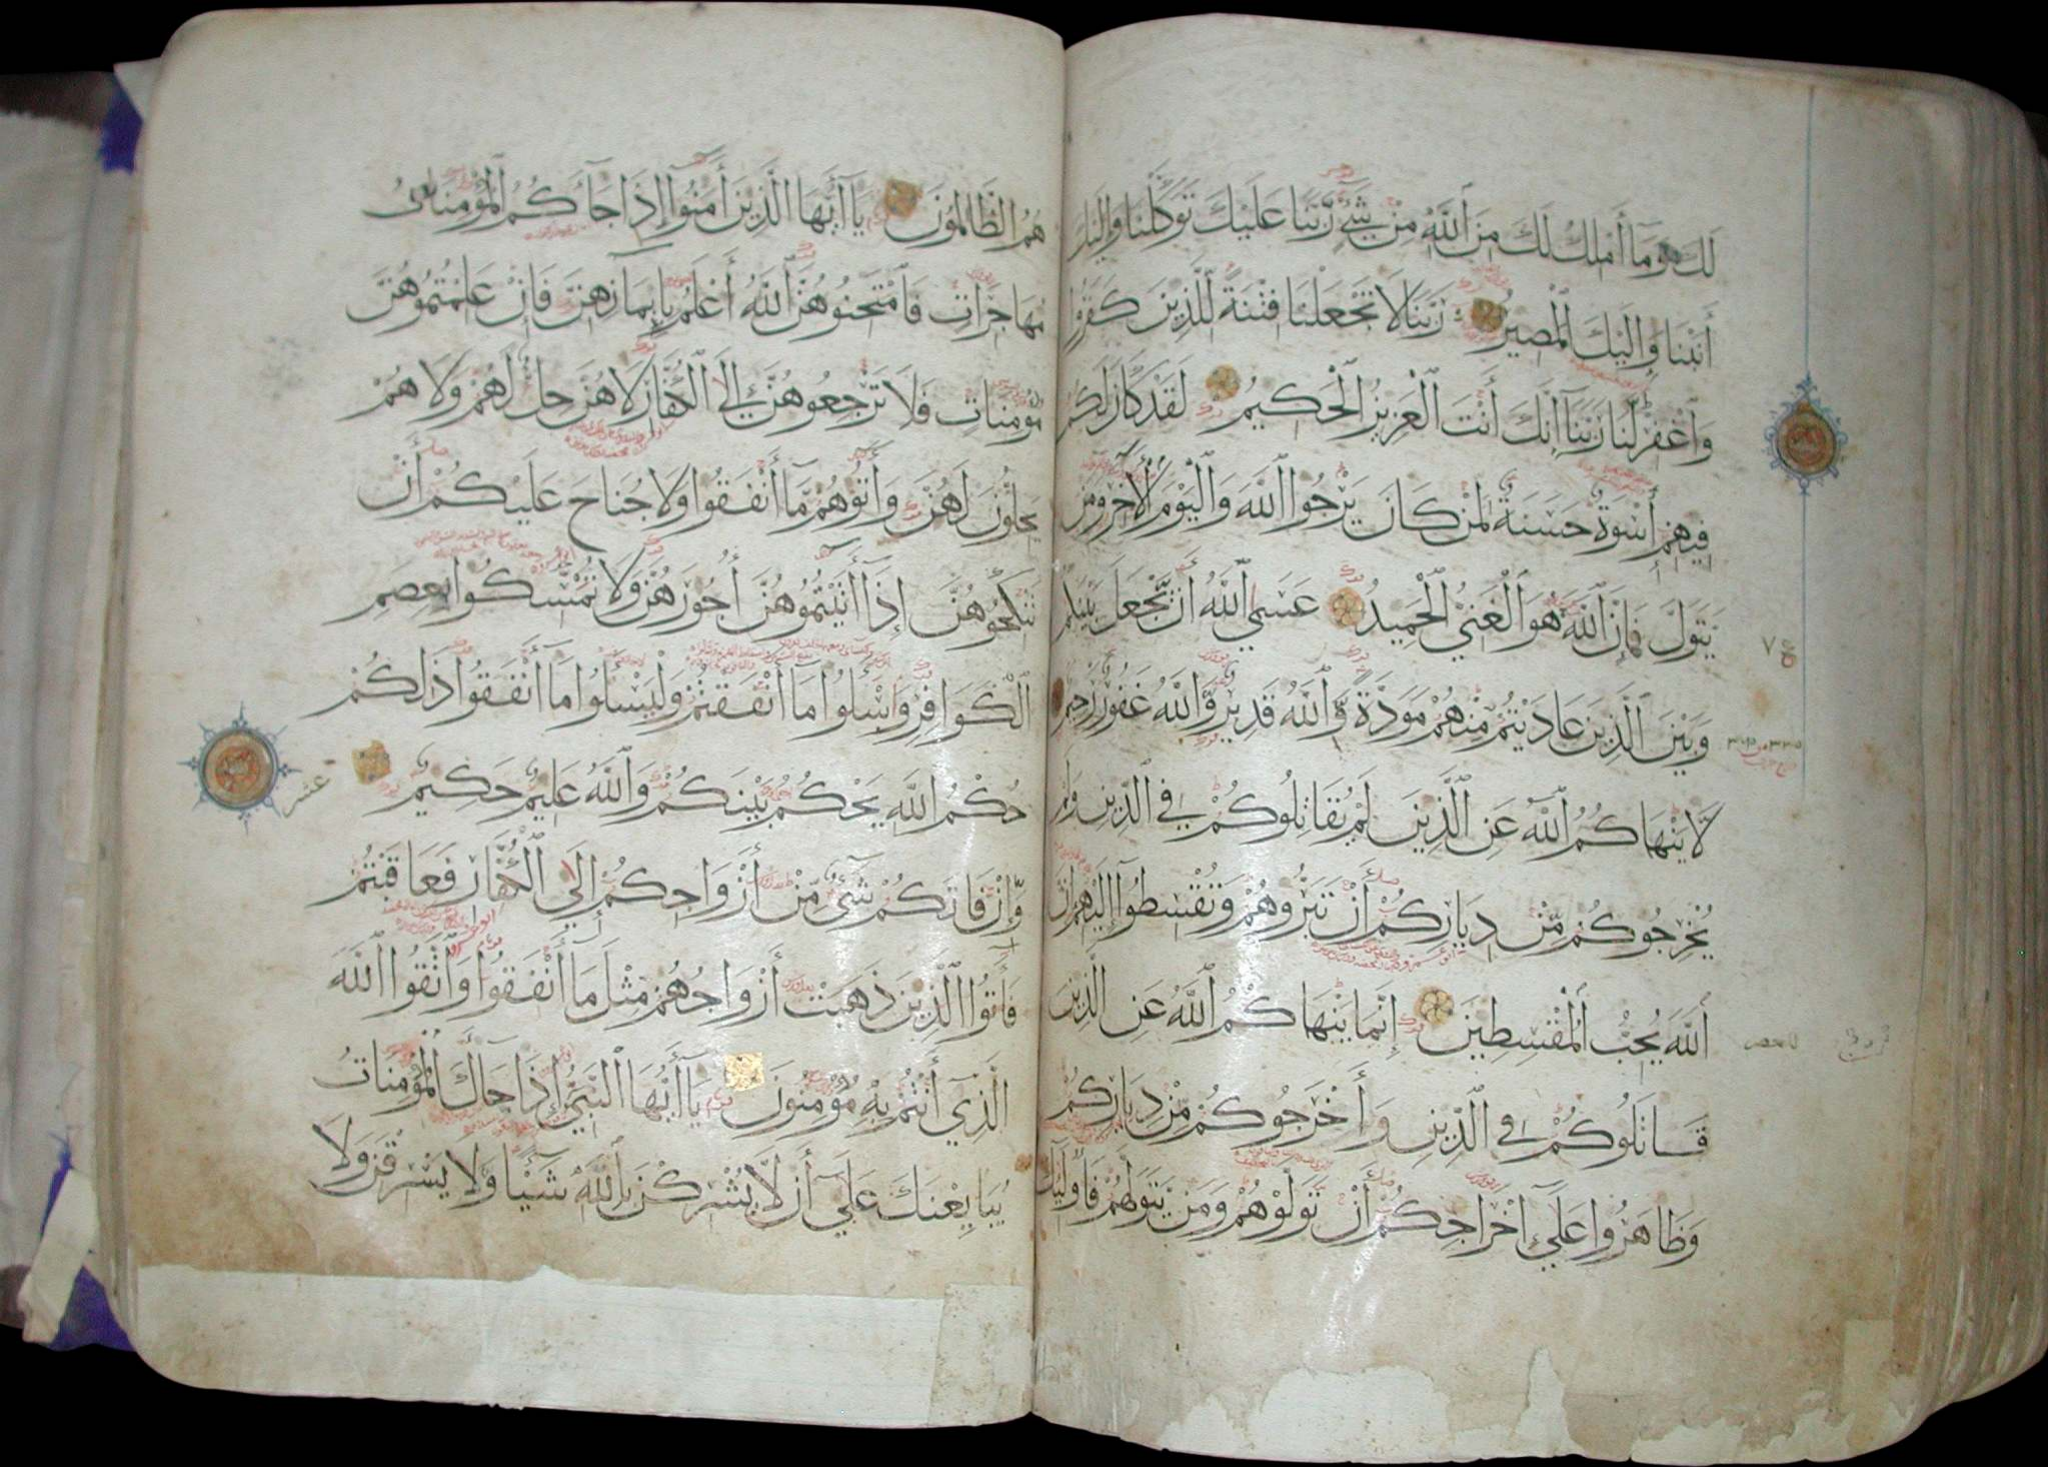 لَكَ وَمَا أَمْلِكُ لَكَ مِنَ اللَّهِ مِنْ شَيْءٍ رَبَّنَا عَلَيْكَ تَوَكَّلْنَا وَإِلَيْكَ
أَنَبْنَا وَإِلَيْكَ الْمَصِيرُ رَبَّنَا لَا تَجْعَلْنَا فِتْنَةً لِلَّذِينَ كَفَرُوا
وَاغْفِرْ لَنَا رَبَّنَا إِنَّكَ أَنْتَ الْعَزِيزُ الْحَكِيمُ لَقَدْ كَانَ لَكُمْ
فِيهِمْ أُسْوَةٌ حَسَنَةٌ لِمَنْ كَانَ يَرْجُوا اللَّهَ وَالْيَوْمَ الْآخِرَ وَمَنْ
يَتَوَلَّ فَإِنَّ اللَّهَ هُوَ الْغَنِيُّ الْحَمِيدُ عَسَى اللَّهُ أَنْ يَجْعَلَ بَيْنَكُمْ
وَبَيْنَ الَّذِينَ عَادَيْتُمْ مِنْهُمْ مَوَدَّةً وَاللَّهُ قَدِيرٌ وَاللَّهُ غَفُورٌ رَحِيمٌ
لَا يَنْهَاكُمُ اللَّهُ عَنِ الَّذِينَ لَمْ يُقَاتِلُوكُمْ فِي الدِّينِ وَلَمْ
يُخْرِجُوكُمْ مِنْ دِيَارِكُمْ أَنْ تَبَرُّوهُمْ وَتُقْسِطُوا إِلَيْهِمْ إِنَّ
اللَّهَ يُحِبُّ الْمُقْسِطِينَ إِنَّمَا يَنْهَاكُمُ اللَّهُ عَنِ الَّذِينَ
قَاتَلُوكُمْ فِي الدِّينِ وَأَخْرَجُوكُمْ مِنْ دِيَارِكُمْ
وَظَاهَرُوا عَلَى إِخْرَاجِكُمْ أَنْ تَوَلَّوْهُمْ وَمَنْ يَتَوَلَّهُمْ فَأُولَئِكَ
هُمُ الظَّالِمُونَ يَا أَيُّهَا الَّذِينَ آمَنُوا إِذَا جَاءَكُمُ الْمُؤْمِنَاتُ
مُهَاجِرَاتٍ فَامْتَحِنُوهُنَّ اللَّهُ أَعْلَمُ بِإِيمَانِهِنَّ فَإِنْ عَلِمْتُمُوهُنَّ
مُؤْمِنَاتٍ فَلَا تَرْجِعُوهُنَّ إِلَى الْكُفَّارِ لَا هُنَّ حِلٌّ لَهُمْ وَلَا هُمْ
يَحِلُّونَ لَهُنَّ وَآتُوهُمْ مَا أَنْفَقُوا وَلَا جُنَاحَ عَلَيْكُمْ أَنْ
تَنْكِحُوهُنَّ إِذَا آتَيْتُمُوهُنَّ أُجُورَهُنَّ وَلَا تُمْسِكُوا بِعِصَمِ
الْكَوَافِرِ وَاسْأَلُوا مَا أَنْفَقْتُمْ وَلْيَسْأَلُوا مَا أَنْفَقُوا ذَلِكُمْ
حُكْمُ اللَّهِ يَحْكُمُ بَيْنَكُمْ وَاللَّهُ عَلِيمٌ حَكِيمٌ
عشر
وَإِنْ فَاتَكُمْ شَيْءٌ مِنْ أَزْوَاجِكُمْ إِلَى الْكُفَّارِ فَعَاقَبْتُمْ
فَآتُوا الَّذِينَ ذَهَبَتْ أَزْوَاجُهُمْ مِثْلَ مَا أَنْفَقُوا وَاتَّقُوا اللَّهَ
الَّذِي أَنْتُمْ بِهِ مُؤْمِنُونَ يَا أَيُّهَا النَّبِيُّ إِذَا جَاءَكَ الْمُؤْمِنَاتُ
يُبَايِعْنَكَ عَلَى أَنْ لَا يُشْرِكْنَ بِاللَّهِ شَيْئًا وَلَا يَسْرِقْنَ وَلَا